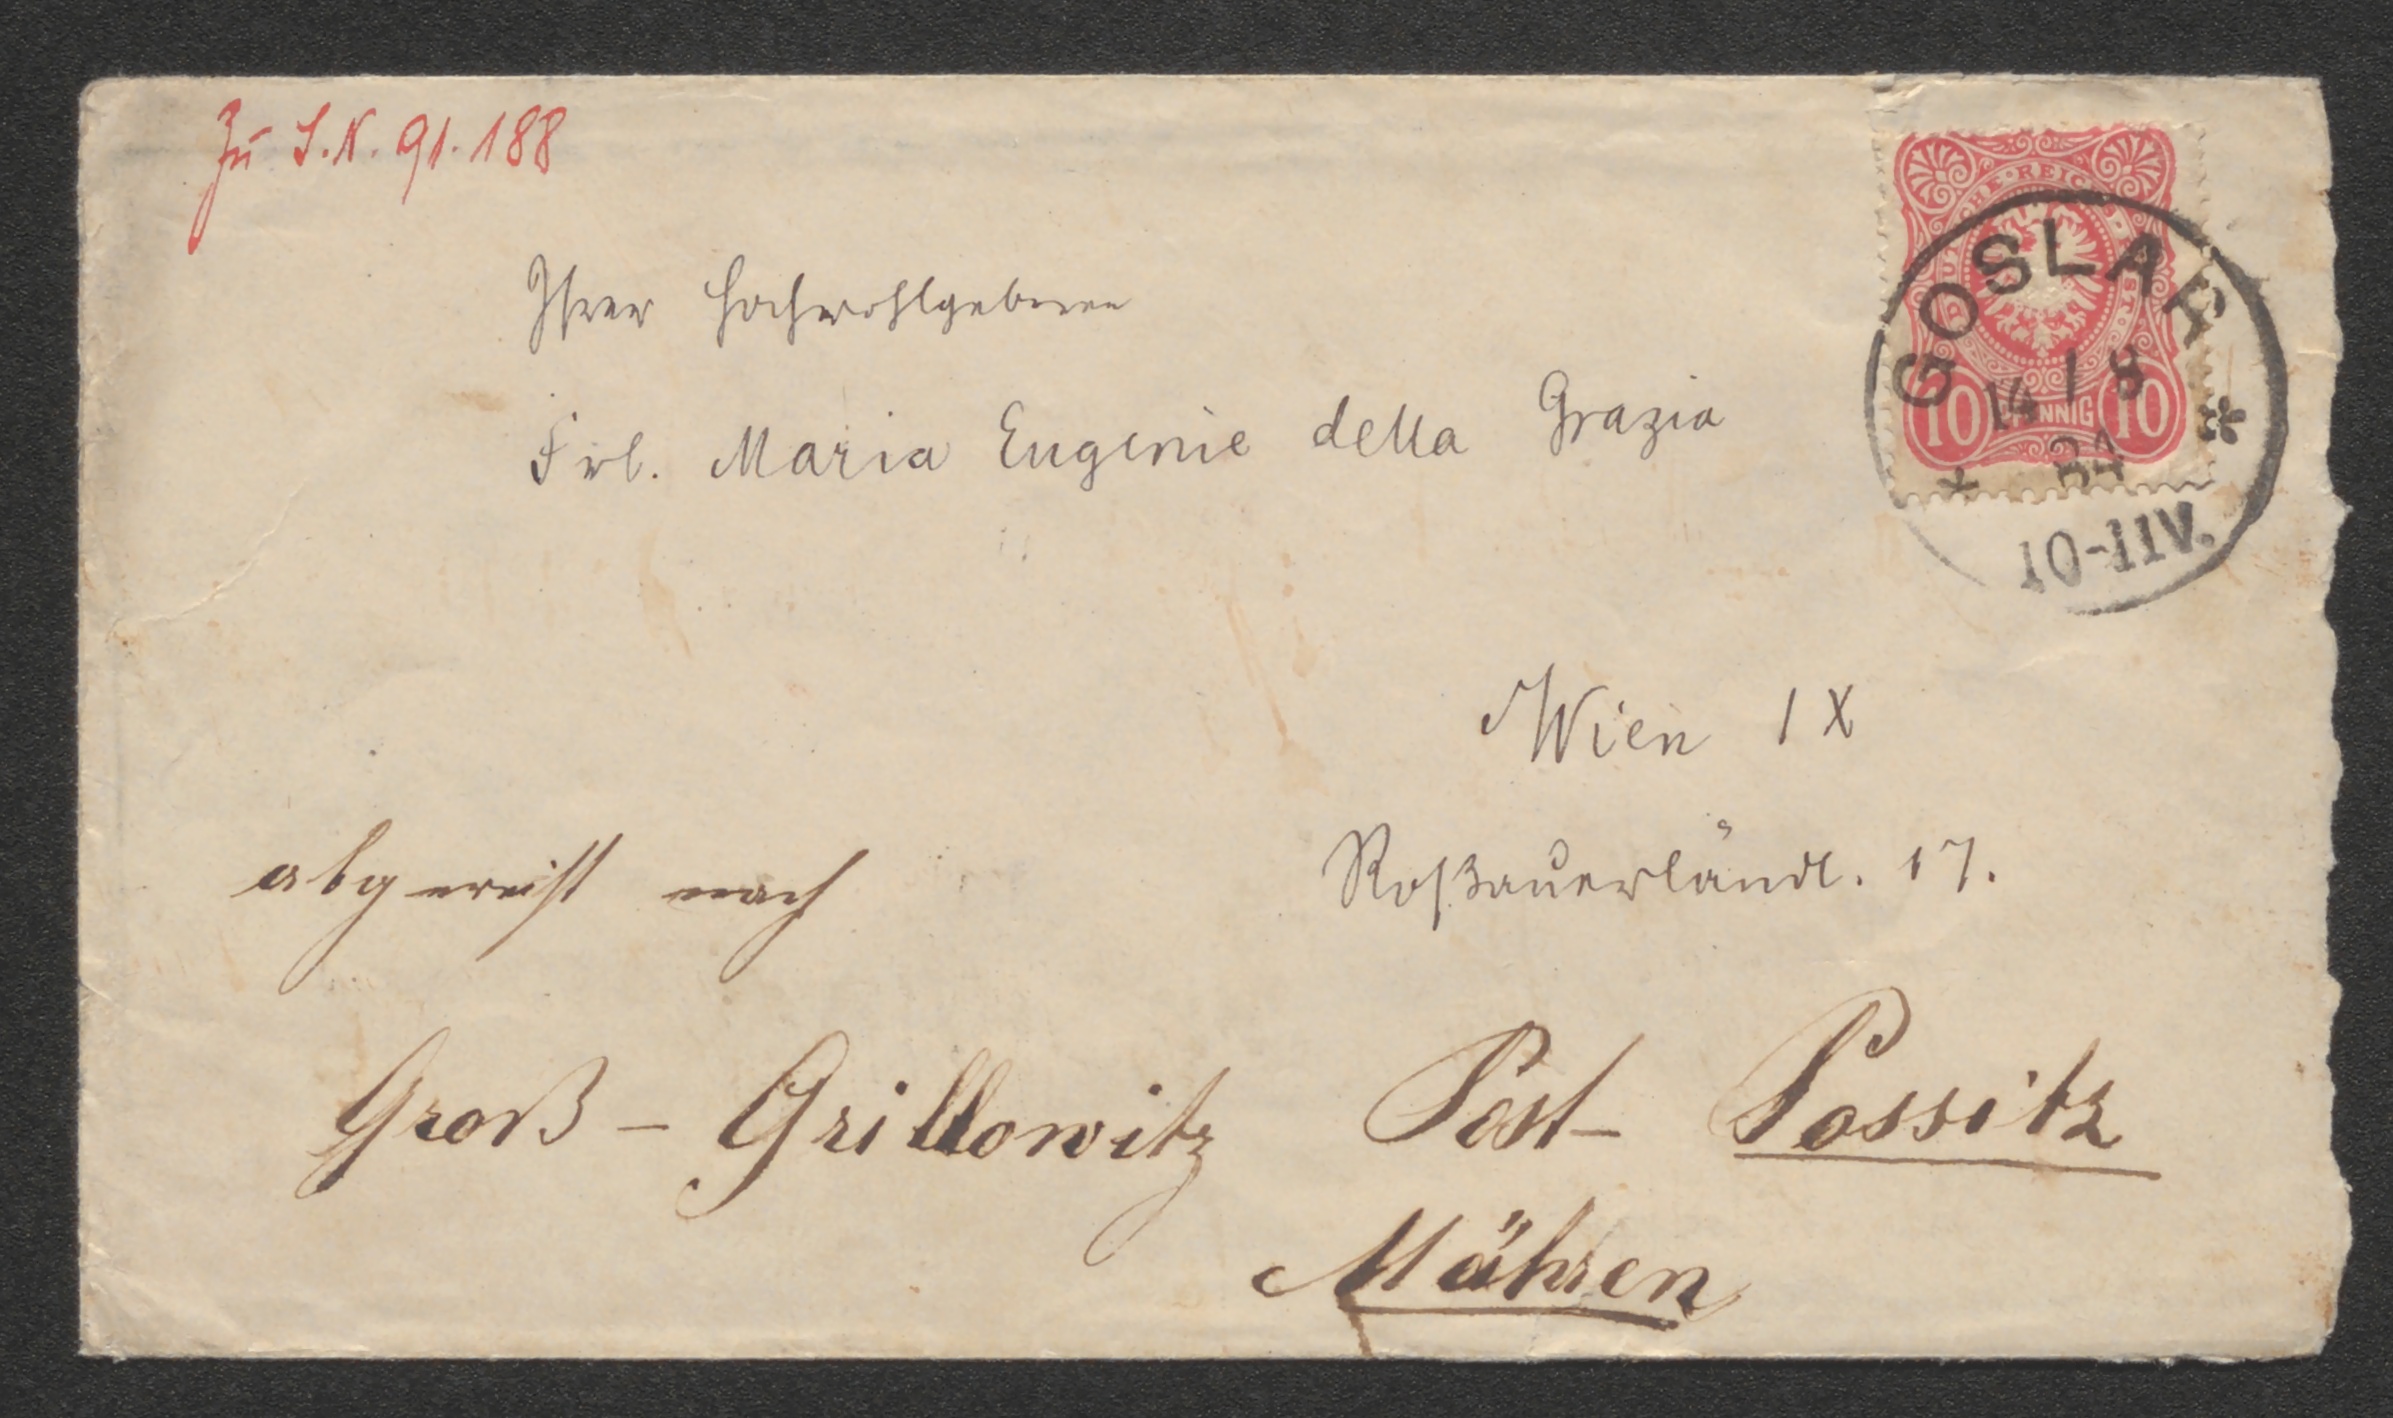 Zu I.N. 91.188
DEUTSCHE · REICHS · POST
10 PFENNIG 10
GOSLAR
14 / 8
84
10-11V.
Ihrer Hochwohlgeboren
Frl. Maria Eugenie della Grazia
Wien IX
Roßauerländl. 17.
abgereist nach
Groß - Grillowitz Post - Possitz
Mähren